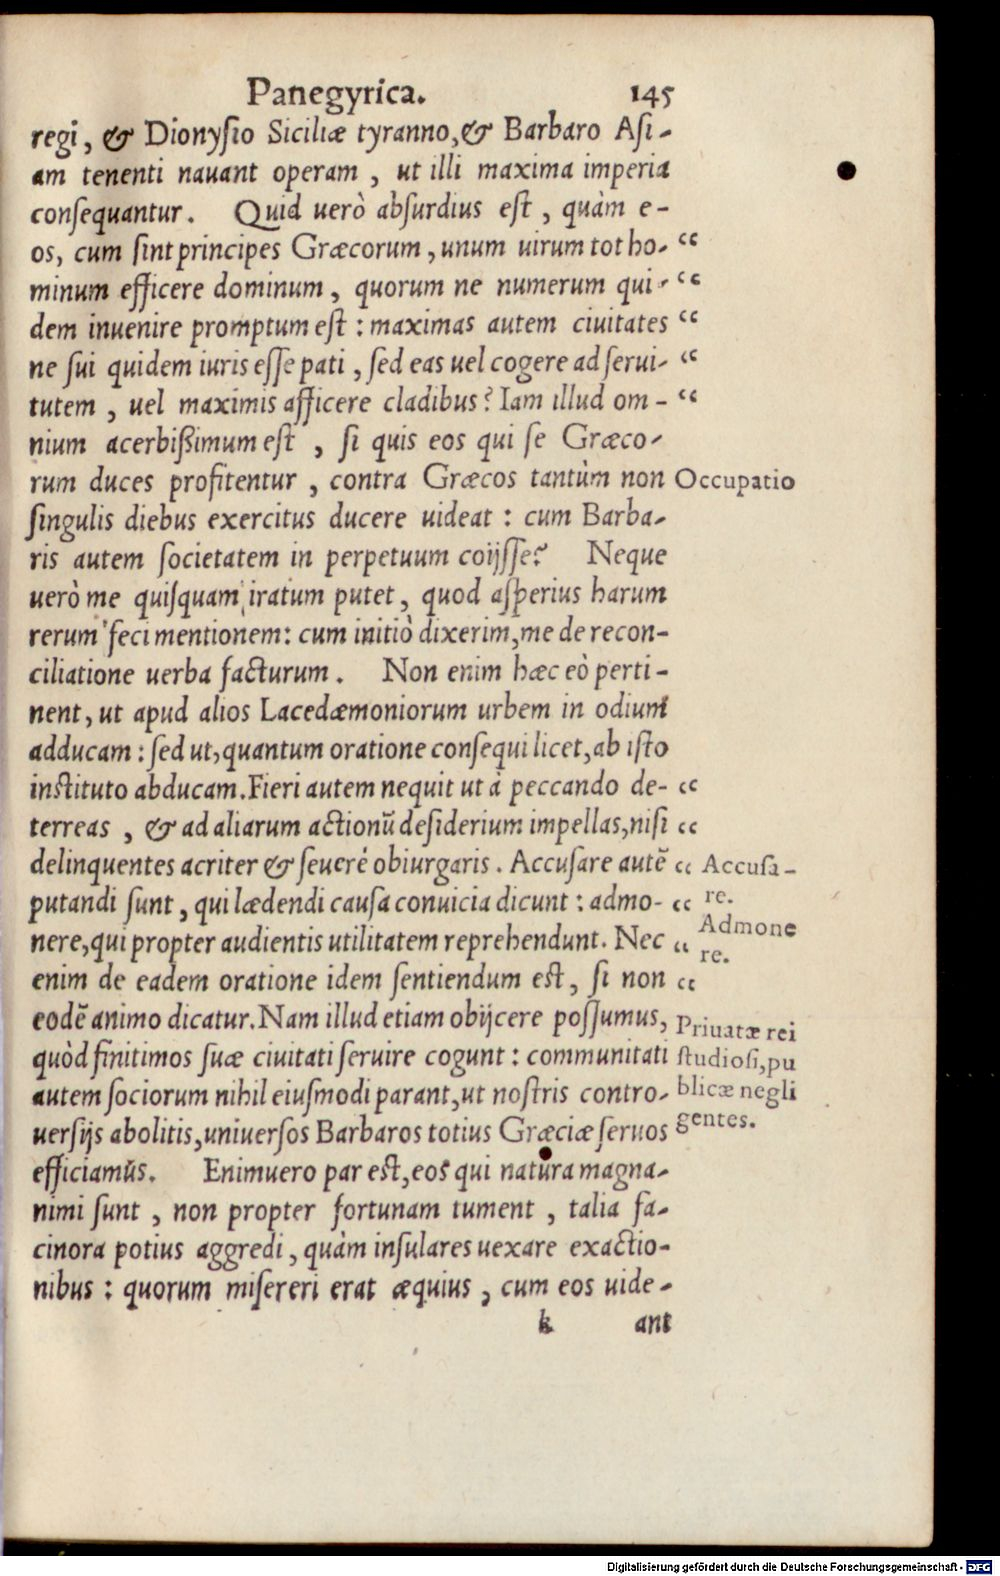 Panegyrica. 145
regi, & Dionyſio Siciliæ tyranno, & Barbaro Aſi-
am tenenti nauant operam, ut illi maxima imperia
conſequantur. Quid uerò abſurdius eſt, quàm e-
os, cum ſint principes Græcorum, unum uirum tot ho- “
minum efficere dominum, quorum ne numerum qui- “
dem inuenire promptum eſt: maximas autem ciuitates “
ne ſui quidem iuris eſſe pati, ſed eas uel cogere ad ſerui- “
tutem, uel maximis afficere cladibus? Iam illud om- “
nium acerbißimum eſt, ſi quis eos qui ſe Græco-
rum duces profitentur, contra Græcos tantùm non Occupatio
ſingulis diebus exercitus ducere uideat: cum Barba-
ris autem ſocietatem in perpetuum coijſſe? Neque
uerò me quiſquam iratum putet, quod aſperius harum
rerum feci mentionem: cum initiò dixerim, me de recon-
ciliatione uerba facturum. Non enim hæc eò perti-
nent, ut apud alios Lacedæmoniorum urbem in odium
adducam: ſed ut, quantum oratione conſequi licet, ab iſto
inſtituto abducam. Fieri autem nequit ut à peccando de- “
terreas, & ad aliarum actionũ deſiderium impellas, niſi “
delinquentes acriter & ſeueré obiurgaris. Accuſare autẽ “ Accuſa-
putandi ſunt, qui lædendi cauſa conuicia dicunt: admo- “ re.
nere, qui propter audientis utilitatem reprehendunt. Nec “ Admone
re.
enim de eadem oratione idem ſentiendum eſt, ſi non “
eodẽ animo dicatur. Nam illud etiam obijcere poſſumus, Priuatæ rei
quòd finitimos ſuæ ciuitati ſeruire cogunt: communitati ſtudioſi, pu
autem ſociorum nihil eiuſmodi parant, ut noſtris contro- blicæ negli
uerſijs abolitis, uniuerſos Barbaros totius Græciæ ſeruos gentes.
efficiamus. Enimuero par eſt, eos qui natura magna-
nimi ſunt, non propter fortunam tument, talia fa-
cinora potius aggredi, quàm inſulares uexare exactio-
nibus: quorum miſereri erat æquius, cum eos uide-
k ant
Digitalisierung gefördert durch die Deutsche Forschungsgemeinschaft - DFG